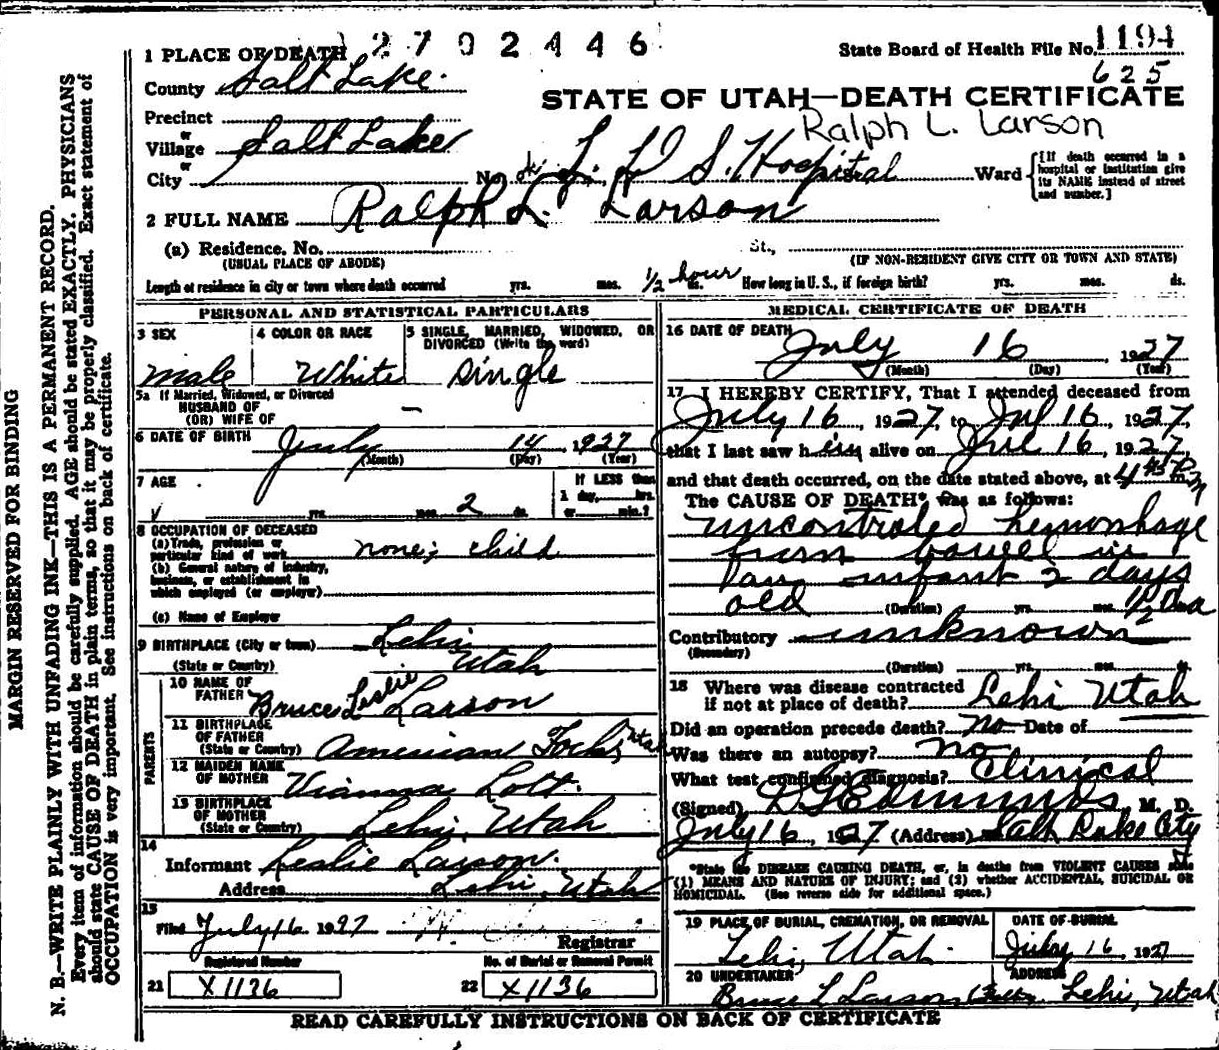 1 PLACE OF DEATH 2702446
State Board of Health File No. 1194
625
County Salt Lake
STATE OF UTAH—DEATH CERTIFICATE
Ralph L. Larson
Precinct
or
Village Salt Lake
or
City
No. L. D. S. Hospital Ward
[If death occurred in a hospital or institution give its NAME instead of street and number.]
2 FULL NAME Ralph L. Larson
(a) Residence. No. St.,
(USUAL PLACE OF ABODE) (IF NON-RESIDENT GIVE CITY OR TOWN AND STATE)
Length of residence in city or town where death occurred yrs. mos. 1/2 hour ds. How long in U. S., if foreign birth? yrs. mos. ds.
PERSONAL AND STATISTICAL PARTICULARS
3 SEX 4 COLOR OR RACE 5 SINGLE, MARRIED, WIDOWED, OR DIVORCED (Write the word)
male White single
5a If Married, Widowed, or Divorced
HUSBAND OF
(OR) WIFE OF —
6 DATE OF BIRTH July 14, 1927
(Month) (Day) (Year)
7 AGE If LESS than
1 day, hrs.
yrs. mos. 2 ds. or min.?
8 OCCUPATION OF DECEASED
(a) Trade, profession or
particular kind of work none; child
(b) General nature of industry,
business, or establishment in
which employed (or employer)
(c) Name of Employer
9 BIRTHPLACE (City or town) Lehi
(State or Country) Utah
PARENTS
10 NAME OF
FATHER Bruce Leslie Larson
11 BIRTHPLACE
OF FATHER
(State or Country) American Fork, Utah
12 MAIDEN NAME
OF MOTHER Vianna Lott.
13 BIRTHPLACE
OF MOTHER
(State or Country) Lehi, Utah
14
Informant Leslie Larson.
Address Lehi, Utah
15
Filed July 16 1927
Registrar
Registered Number No. of Burial or Removal Permit
21 X1136 22 X1136
MEDICAL CERTIFICATE OF DEATH
16 DATE OF DEATH
July 16, 1927
(Month) (Day) (Year)
17 I HEREBY CERTIFY, That I attended deceased from
July 16, 1927, to Jul 16, 1927,
that I last saw him alive on Jul 16, 1927,
and that death occurred, on the date stated above, at 4 45 P.m
The CAUSE OF DEATH* was as follows:
uncontroled hemorrhage
from bowel in
an infant 2 days
old (Duration) yrs. mos. 1 1/2 Da
Contributory unknown
(Secondary)
(Duration) yrs. mos. ds.
18 Where was disease contracted
if not at place of death? Lehi Utah
Did an operation precede death? no Date of
Was there an autopsy? no
What test confirmed diagnosis? Clinical
(Signed) D G Edmunds, M. D.
July 16 1927 (Address) Salt Lake City
*State the DISEASE CAUSING DEATH, or, in deaths from VIOLENT CAUSES state
(1) MEANS AND NATURE OF INJURY; and (2) whether ACCIDENTAL, SUICIDAL OR
HOMICIDAL. (See reverse side for additional space.)
19 PLACE OF BURIAL, CREMATION, OR REMOVAL DATE OF BURIAL
Lehi, Utah. July 16, 1927
20 UNDERTAKER ADDRESS
Bruce L Larson Lehi, Utah
READ CAREFULLY INSTRUCTIONS ON BACK OF CERTIFICATE
MARGIN RESERVED FOR BINDING
N. B.—WRITE PLAINLY WITH UNFADING INK—THIS IS A PERMANENT RECORD.
Every item of information should be carefully supplied. AGE should be stated EXACTLY. PHYSICIANS
should state CAUSE OF DEATH in plain terms, so that it may be properly classified. Exact statement of
OCCUPATION is very important. See instructions on back of certificate.